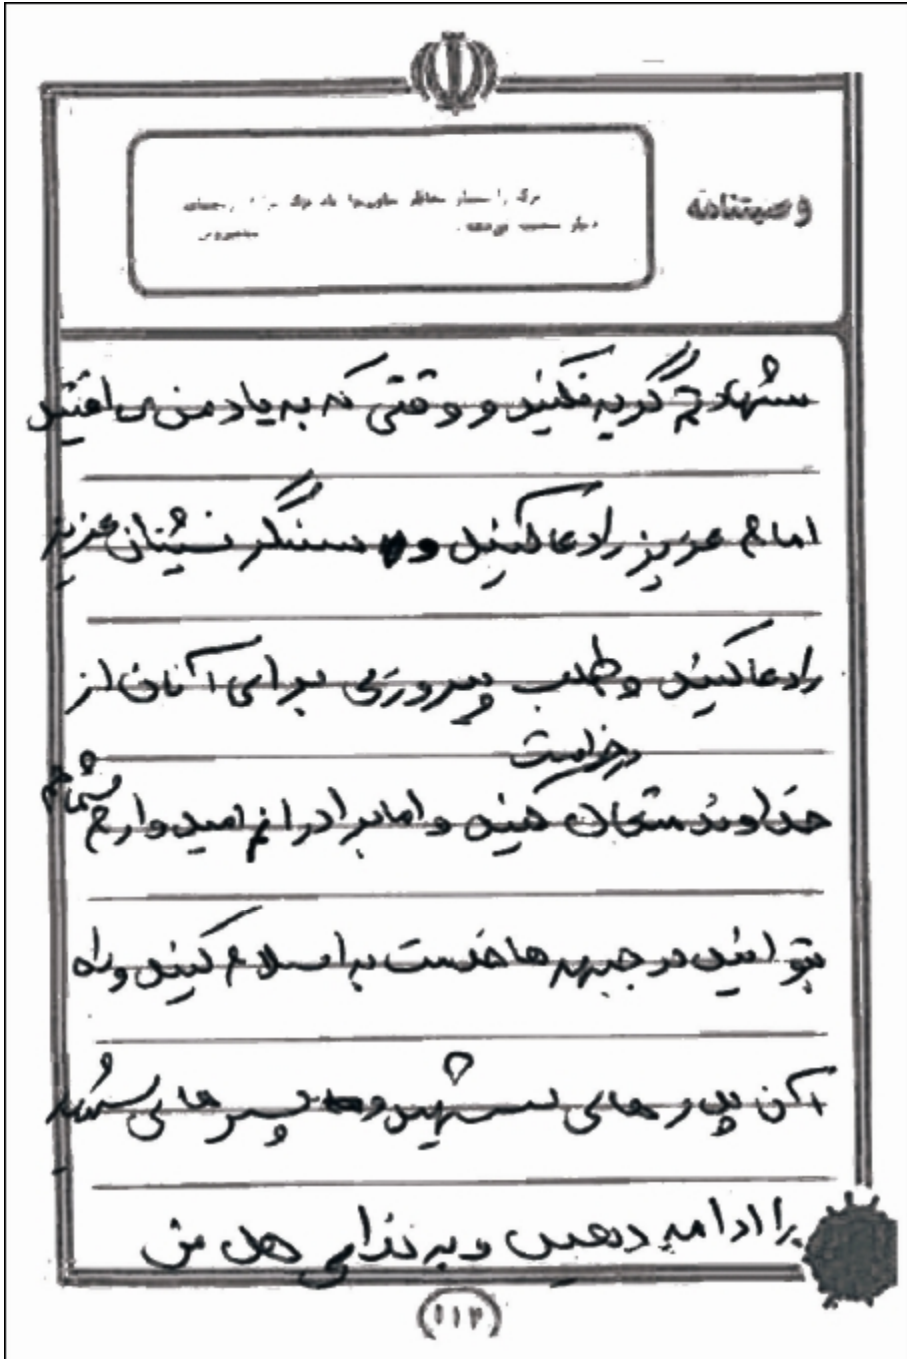 وصیتنامه
شهادتم گریه نکنید و وقتی که به یاد من می افتید
امام عزیز را دعا کنید و سنگر نشینان عزیز
را دعا کنید و طلب پیروزی برای آنان از
درخواست
خداوند متعال کنید و اما برادرانم امیدوارم شما هم
بتوانید در جبهه ها خدمت به اسلام کنید و راه
این پدر های شهید و پسر های شهید
را ادامه دهید و به ندای هل من
۱۱۲